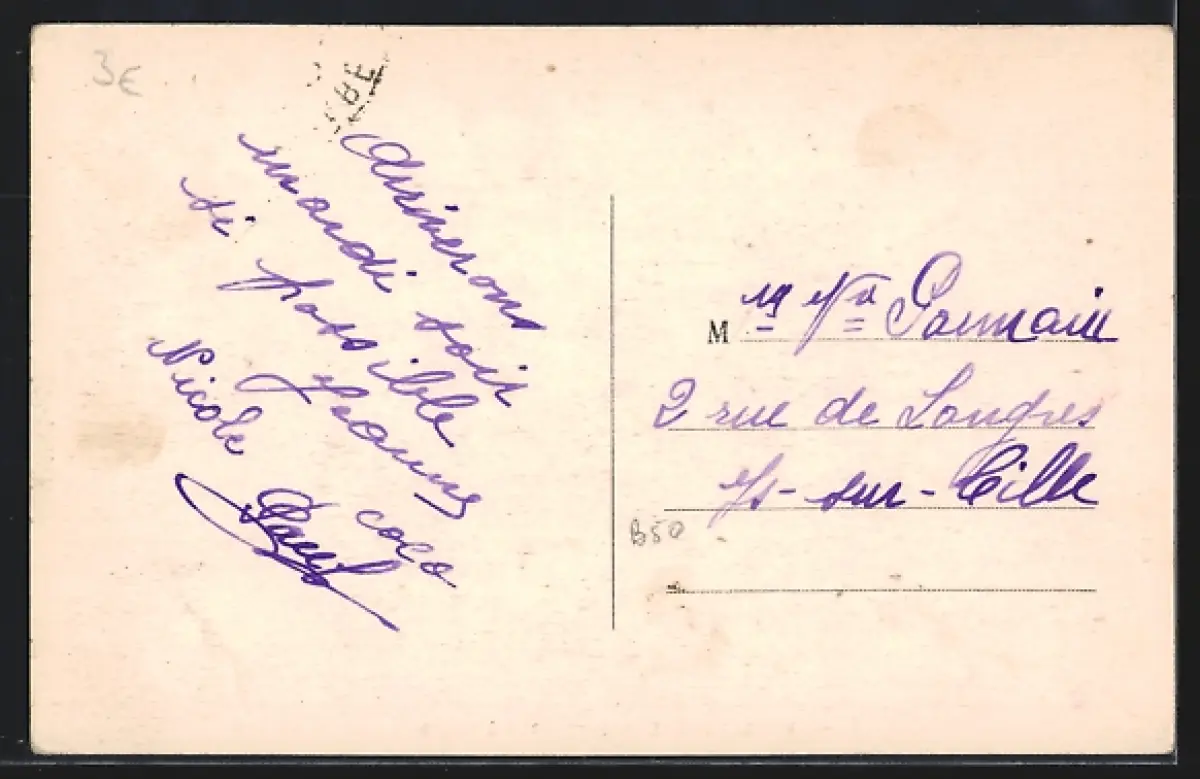 3€
Arriverons
mardi soir
si possible
Jeanne
Nicole coco
Paul
M me Vve Germain
2 rue de Langres
Is-sur-Tille
B50